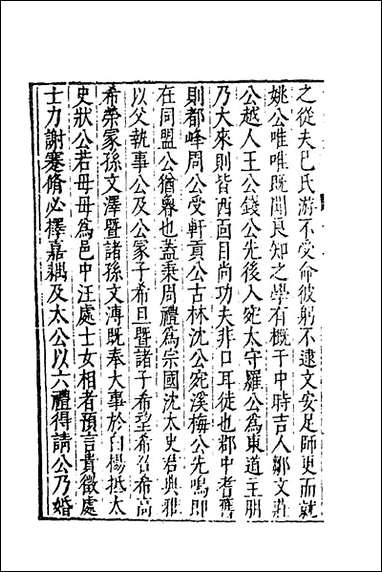 之從夫已氏游不受命彼躬不逮文安足師更而就
姚公唯唯既聞良知之學有概于中時吉人鄒文莊
公越人王公錢公先後入宛太守羅公為東道主朋
乃大來則皆西面目尚功夫非口耳徒也郡中耆舊
則都峰周公受軒貢公古林沈公宛溪梅公先鳴即
在同盟公猶尊也蓋秉周禮為宗國沈太史君與雅
以父執事公及公冡子希旦暨諸子希望希召希高
希榮冡孫文澤暨諸孫文溥既奉大事於白楊抵太
史狀公若母母為邑中汪處士女相者預言貴徵處
士力謝蹇脩必擇嘉耦及太公以六禮得請公乃婚